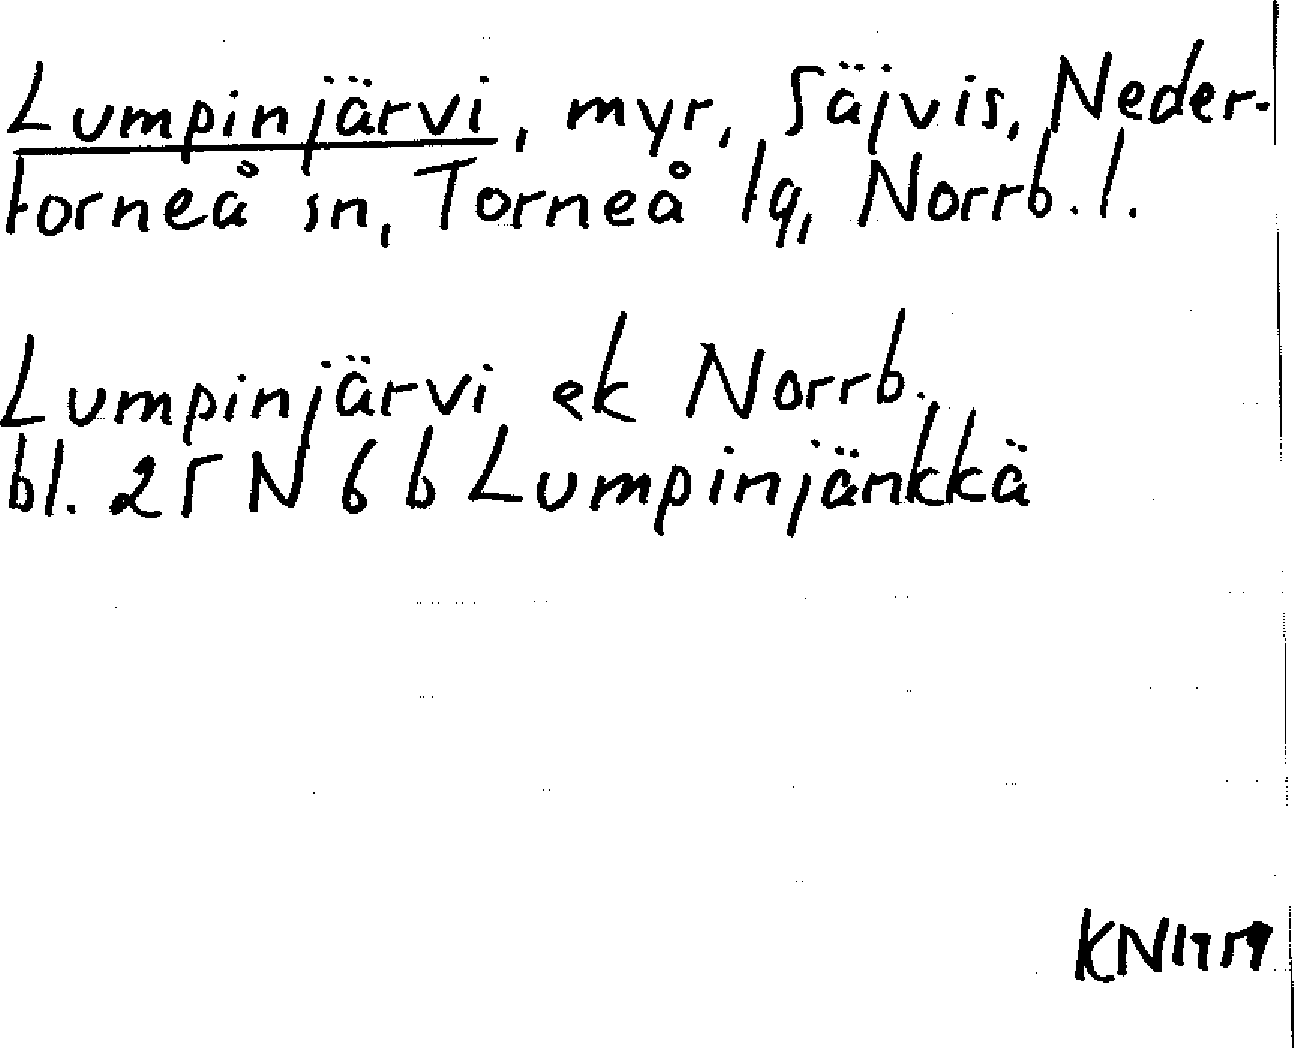 Lumpinjärvi, myr, Säjvis, Neder-
torneå sn, Torneå tg, Norrb. l.
Lumpinjärvi ek Norrb.
bl. 25 N 6 b Lumpinjänkkä